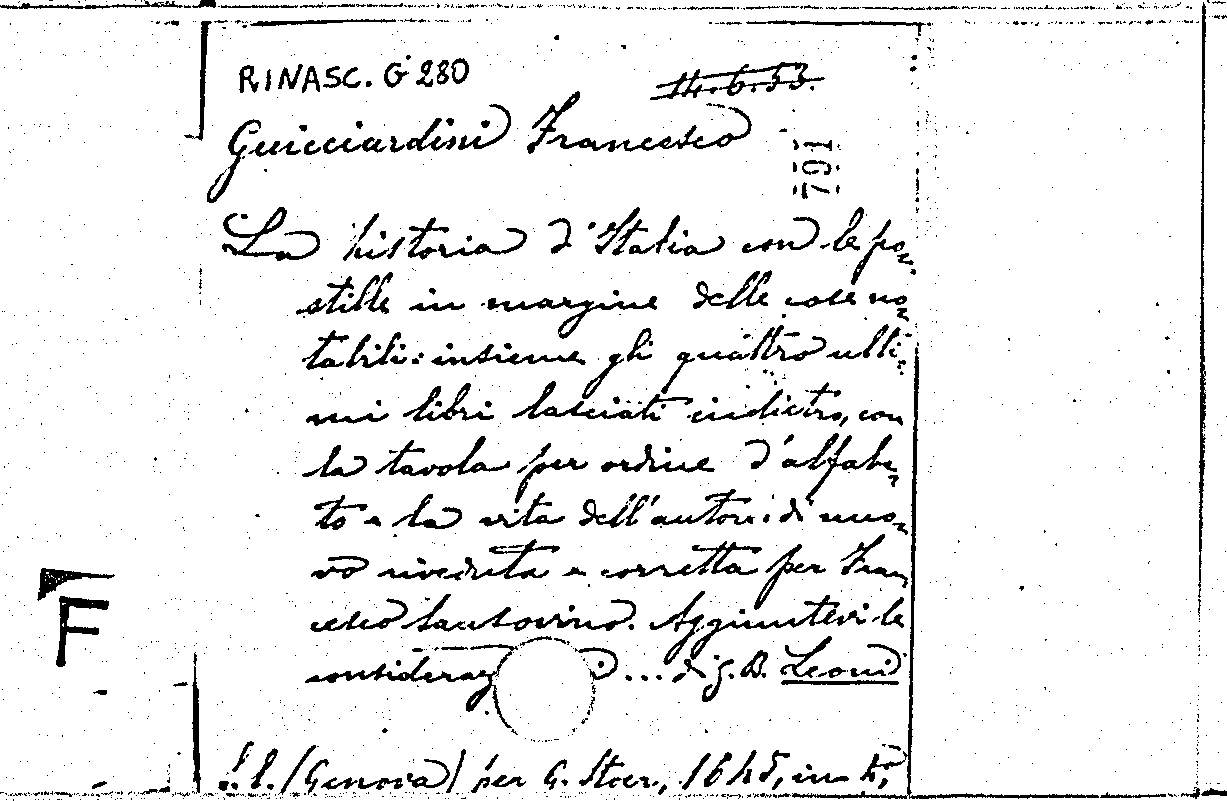 RINASC. G 280
14.6.53.
Guicciardini Francesco
791
La historia d'Italia con le po-
stille in margine delle cose no-
tabili: insieme gli quattro ulti-
mi libri lasciati indietro, con
la tavola per ordine d'alfabe-
to e la vita dell'autore: di nuo-
vo riveduta e corretta per Fran-
cesco Sansovino. Aggiuntevi le
consideraz ... di G. B. Leoni
s. l. (Genova) per G. Stoer, 1645, in 4°
F